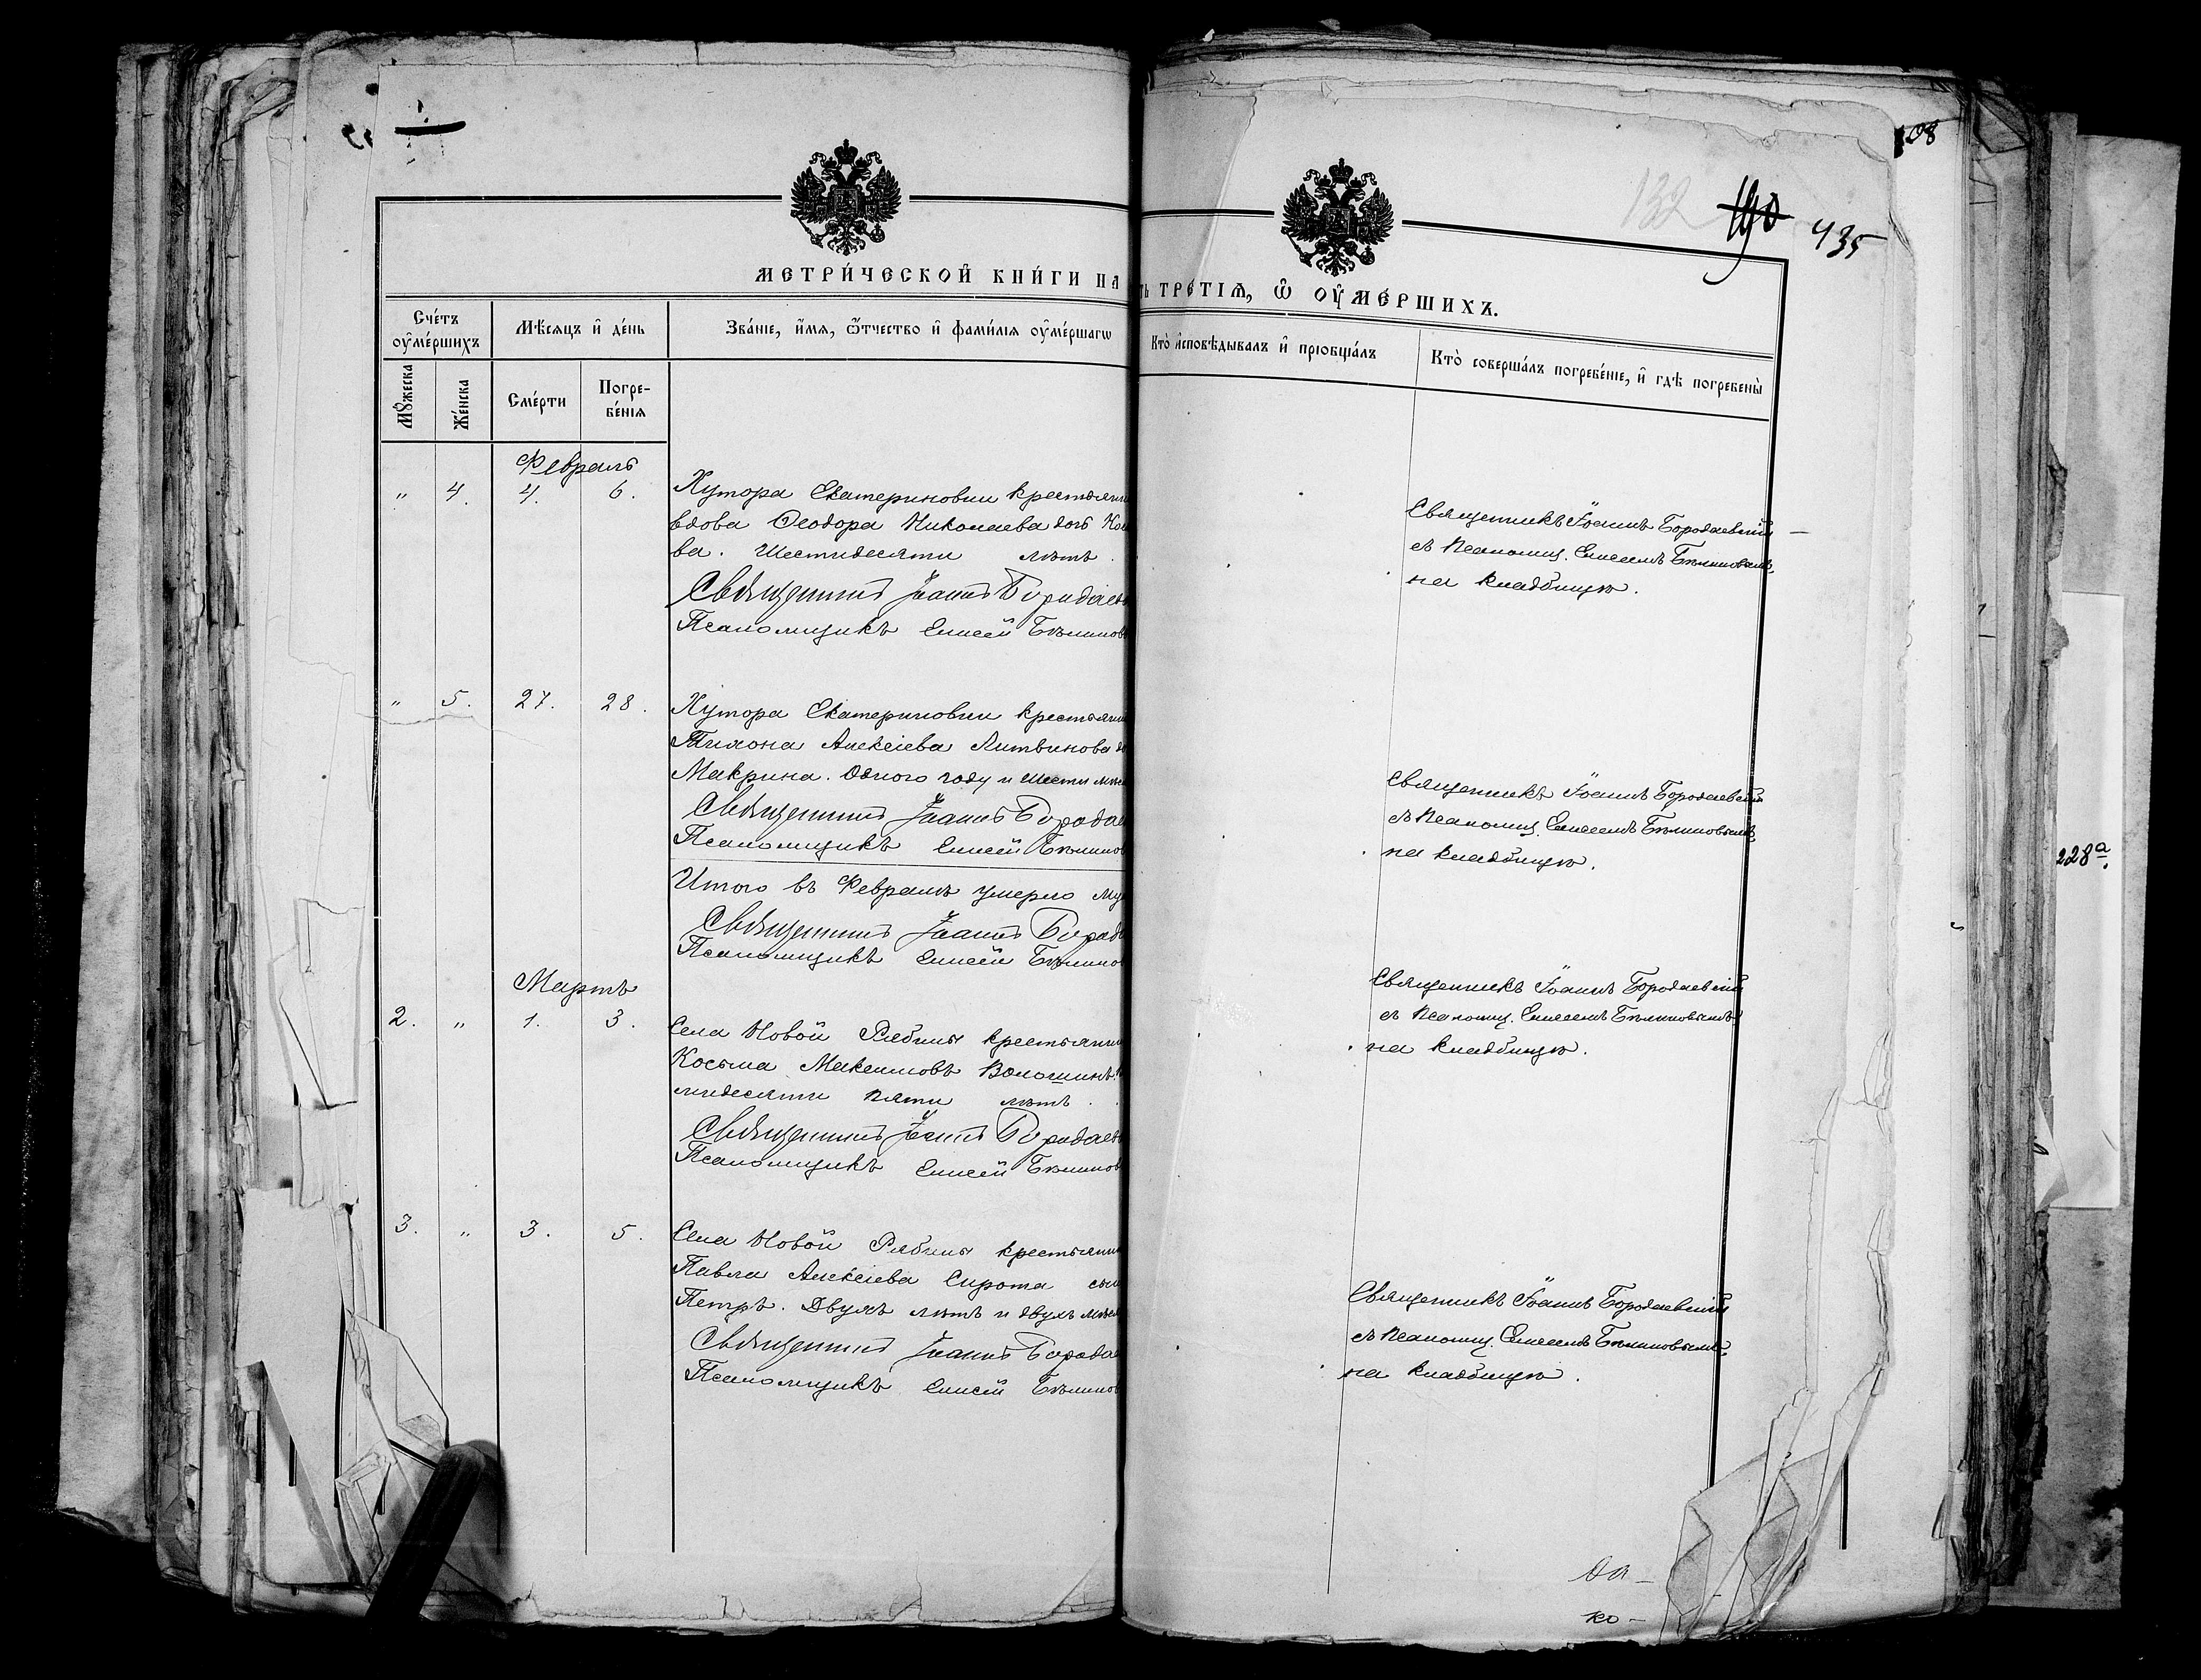 108
132 190 435
МЕТРИ́ЧЕСКОЙ КНИ́ГИ НА
ТЬ ТРЕ́ТІѦ, Ѡ ОУ҆МЕ́РШИХЪ.
Сче́тъ оу҆ме́ршихъ
Мѣ́сяцъ и҆ де́нь
Зва́ніе, и҆́мѧ, ѻ҆́тчество и҆ фами́лія оу҆ме́ршагѡ
Кто̀ и҆сповѣ́дывалъ и҆ прїобща́лъ
Кто̀ соверша́лъ погребе́ніе, и҆ гдѣ̀ погребены̀
Мꙋ́жеска
Же́нска
Сме́рти
Погребе́нія
Февраль
" 4. 4. 6.
Хутора Екатериновки крестьян
вдова Ѳеодора Николаева
ва. Шестидесяти лѣтъ.
Священникъ Іоаннъ Бородаев
Псаломщикъ Елисей Бѣлинов
Священникъ Іоаннъ Бородаевскій
съ псаломщ. Елисеемъ Бѣлиновымъ,
на кладбищѣ.
" 5. 27. 28.
Хутора Екатериновки крестьяни
Тихона Алексіева Литвинова до
Макрина. Одного году и шести мѣс
Священникъ Іоаннъ Бородае
Псаломщикъ Елисей Бѣлинов
Священникъ Іоаннъ Бородаевскій
съ псаломщ. Елисеемъ Бѣлиновымъ,
на кладбищѣ.
Итого въ Февралѣ умерло му
Священникъ Іоаннъ Борода
Псаломщикъ Елисей Бѣлинов
Мартъ
2. " 1. 3.
Села Новой Рябины крестьянин
Косьма Максимовъ Волошинъ.
мидесяти пяти лѣтъ.
Священникъ Іоаннъ Бородаев
Псаломщикъ Елисей Бѣлинов
Священникъ Іоаннъ Бородаевскій
съ псаломщ. Елисеемъ Бѣлиновымъ
на кладбищѣ.
3. " 3. 5.
Села Новой Рябины крестьянин
Павла Алексіева Сирота сын
Петръ. Двухъ лѣтъ и двухъ мѣся
Священникъ Іоаннъ Бородае
Псаломщикъ Елисей Бѣлинов
Священникъ Іоаннъ Бородаевскій
съ псаломщ. Елисеемъ Бѣлиновымъ,
на кладбищѣ.
228а.